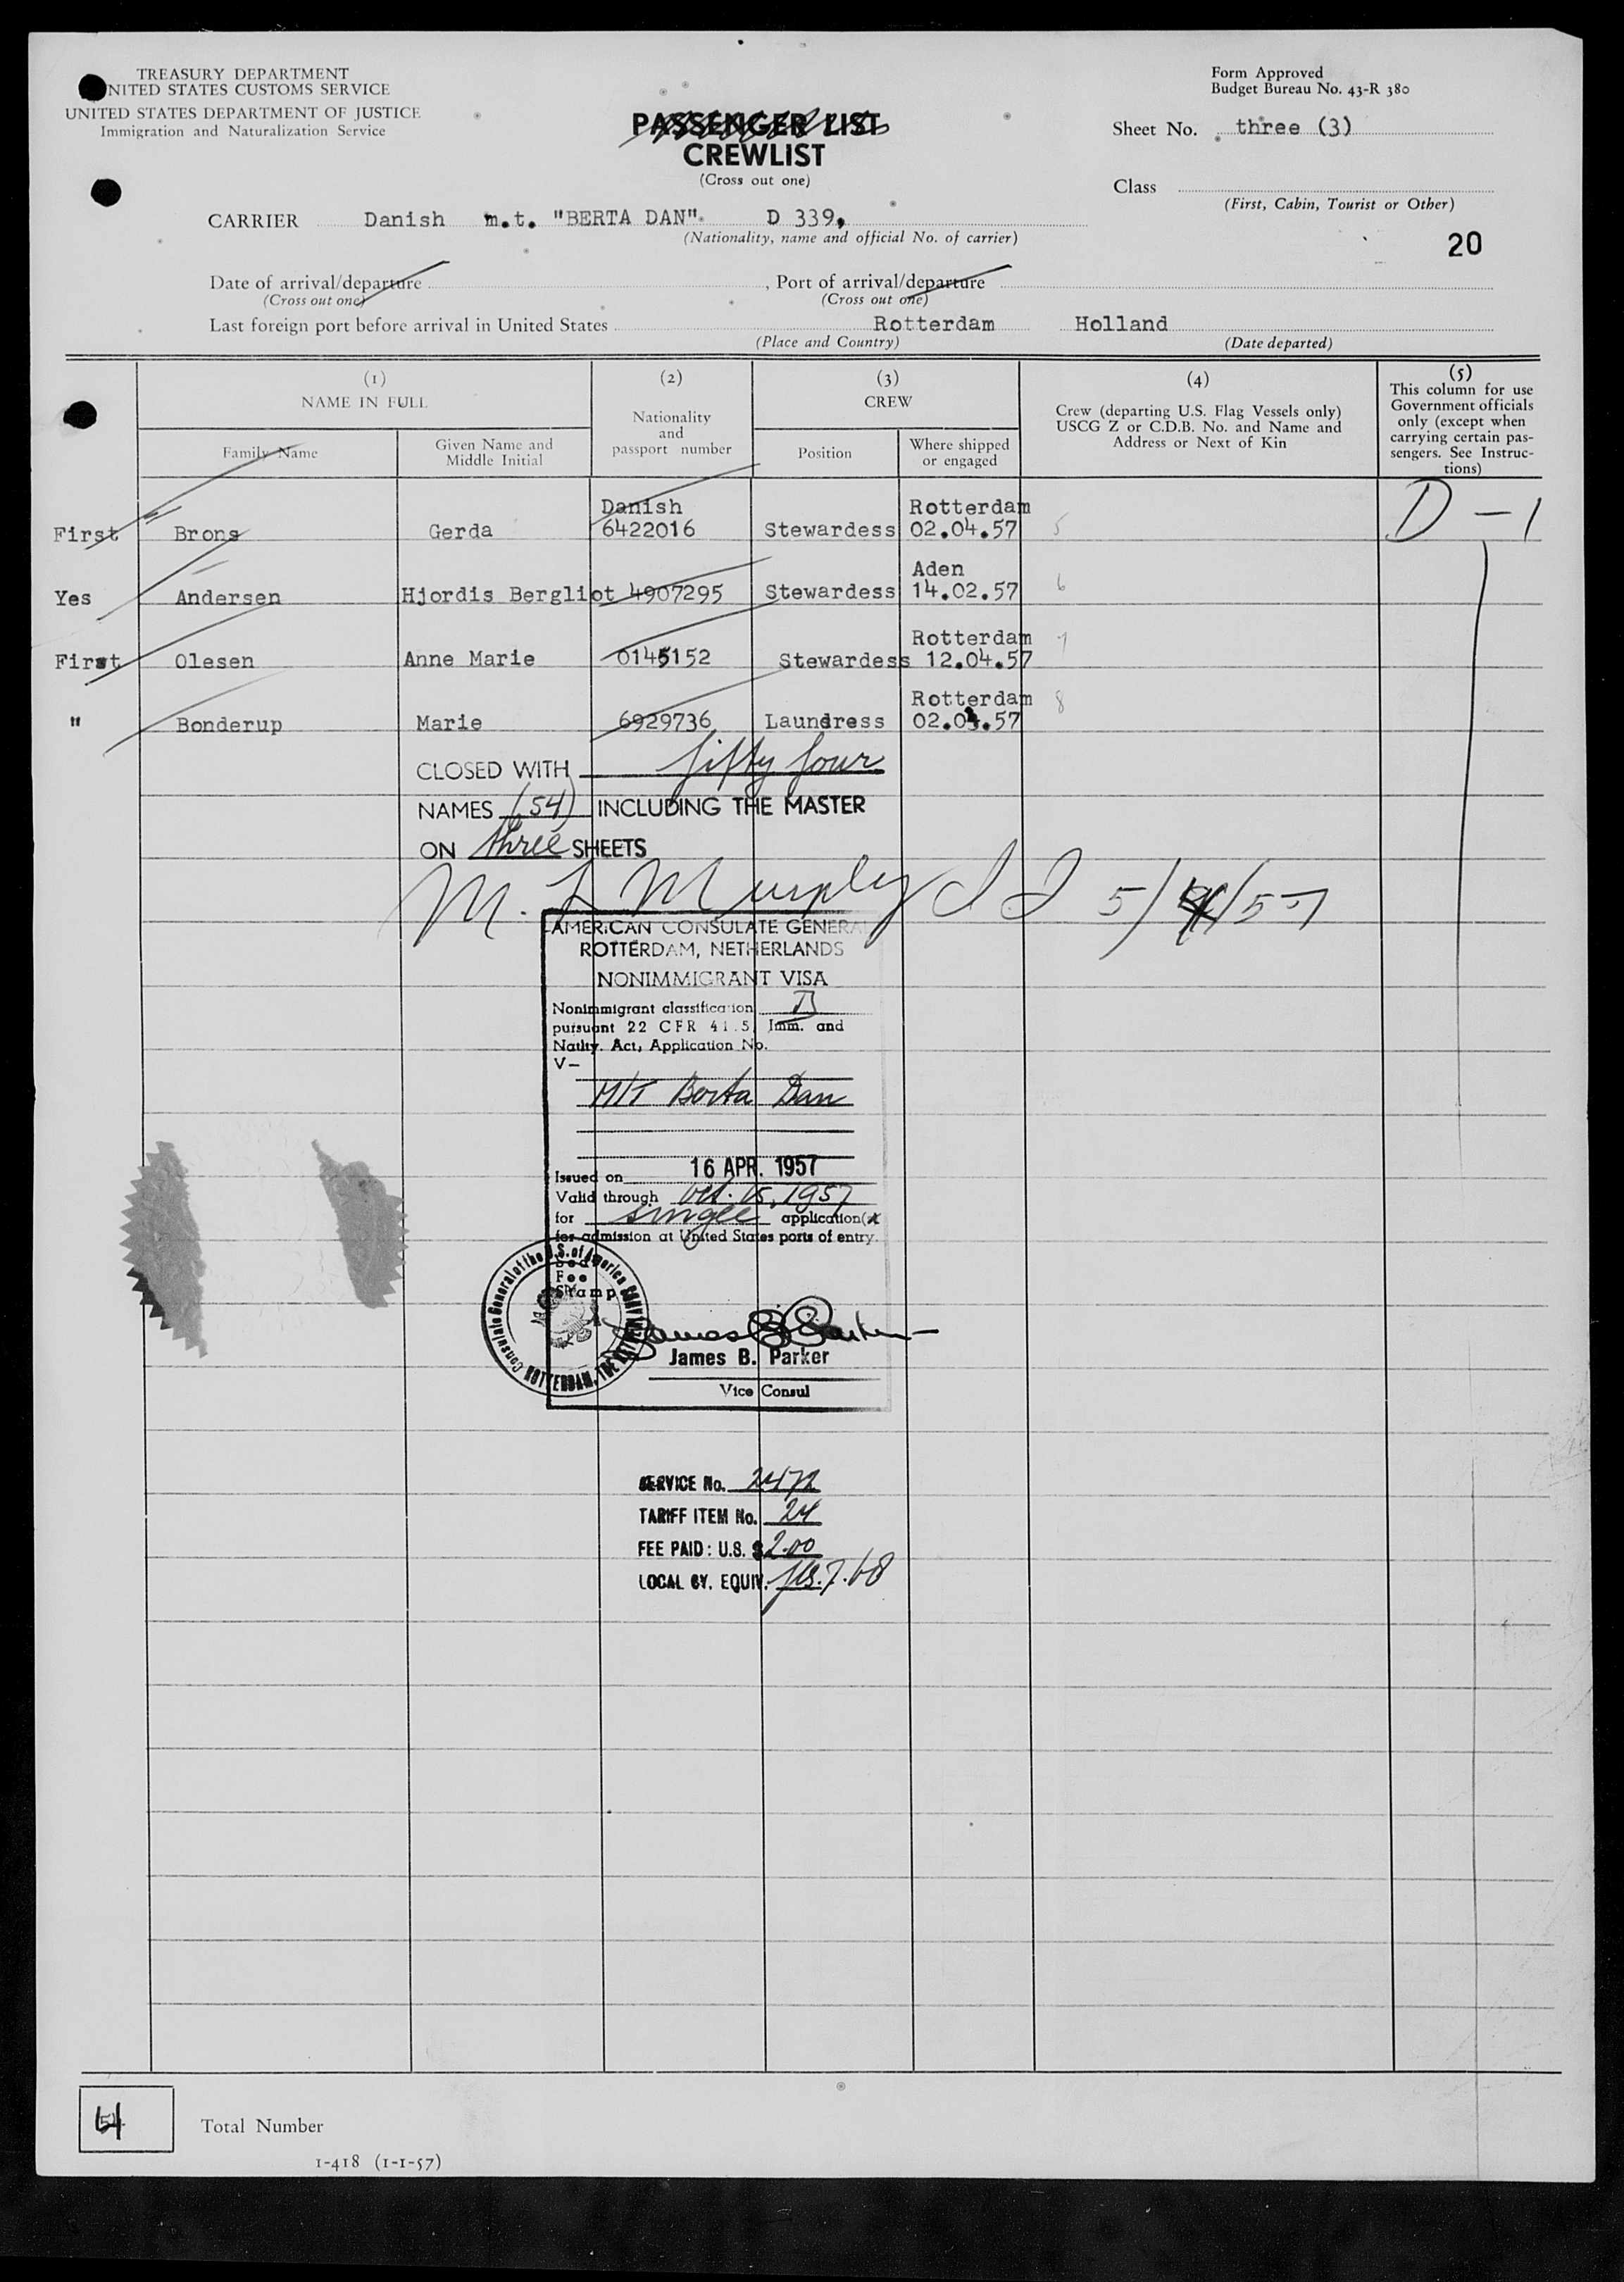 TREASURY DEPARTMENT
UNITED STATES CUSTOMS SERVICE
UNITED STATES DEPARTMENT OF JUSTICE
Immigration and Naturalization Service
Form Approved
Budget Bureau No. 43-R 380
PASSENGER LIST
CREWLIST
(Cross out one)
Sheet No. three (3)
Class
(First, Cabin, Tourist or Other)
CARRIER Danish m.t. "BERTA DAN" D 339,
(Nationality, name and official No. of carrier)
20
Date of arrival/departure , Port of arrival/departure
(Cross out one) (Cross out one)
Last foreign port before arrival in United States Rotterdam Holland
(Place and Country) (Date departed)
(1) (2) (3) (4) (5)
NAME IN FULL
Family Name
Given Name and
Middle Initial
Nationality
and
passport number
CREW
Position
Where shipped
or engaged
Crew (departing U.S. Flag Vessels only)
USCG Z or C.D.B. No. and Name and
Address or Next of Kin
This column for use
Government officials
only (except when
carrying certain pas-
sengers. See Instruc-
tions)
Danish Rotterdam
First Brons Gerda 6422016 Stewardess 02.04.57 5 D-1
Aden
Yes Andersen Hjordis Bergliot 4907295 Stewardess 14.02.57 6
Rotterdam
First Olesen Anne Marie 0145152 Stewardess 12.04.57 7
Rotterdam
" Bonderup Marie 6929736 Laundress 02.04.57 8
CLOSED WITH fifty four
NAMES (54) INCLUDING THE MASTER
ON three SHEETS
M. L Murphy
AMERICAN CONSULATE GENERAL
ROTTERDAM, NETHERLANDS
NONIMMIGRANT VISA
Nonimmigrant classification D
pursuant 22 CFR 41.5, Imm. and
Natlty. Act, Application No.
V-
M/T Berta Dan
Issued on 16 APR. 1957
Valid through Oct. 15, 1957
for single application(s)
for admission at United States ports of entry.
Seal
Fee
Stamp
Consulate General of the U.S. of America
ROTTERDAM, THE NETHERLANDS
James B. Parker
James B. Parker
Vice Consul
SERVICE No. 2472
TARIFF ITEM No. 24
FEE PAID: U.S. $ 2.00
LOCAL CY. EQUIV. fls. 7.68
Total Number
I-418 (1-1-57)